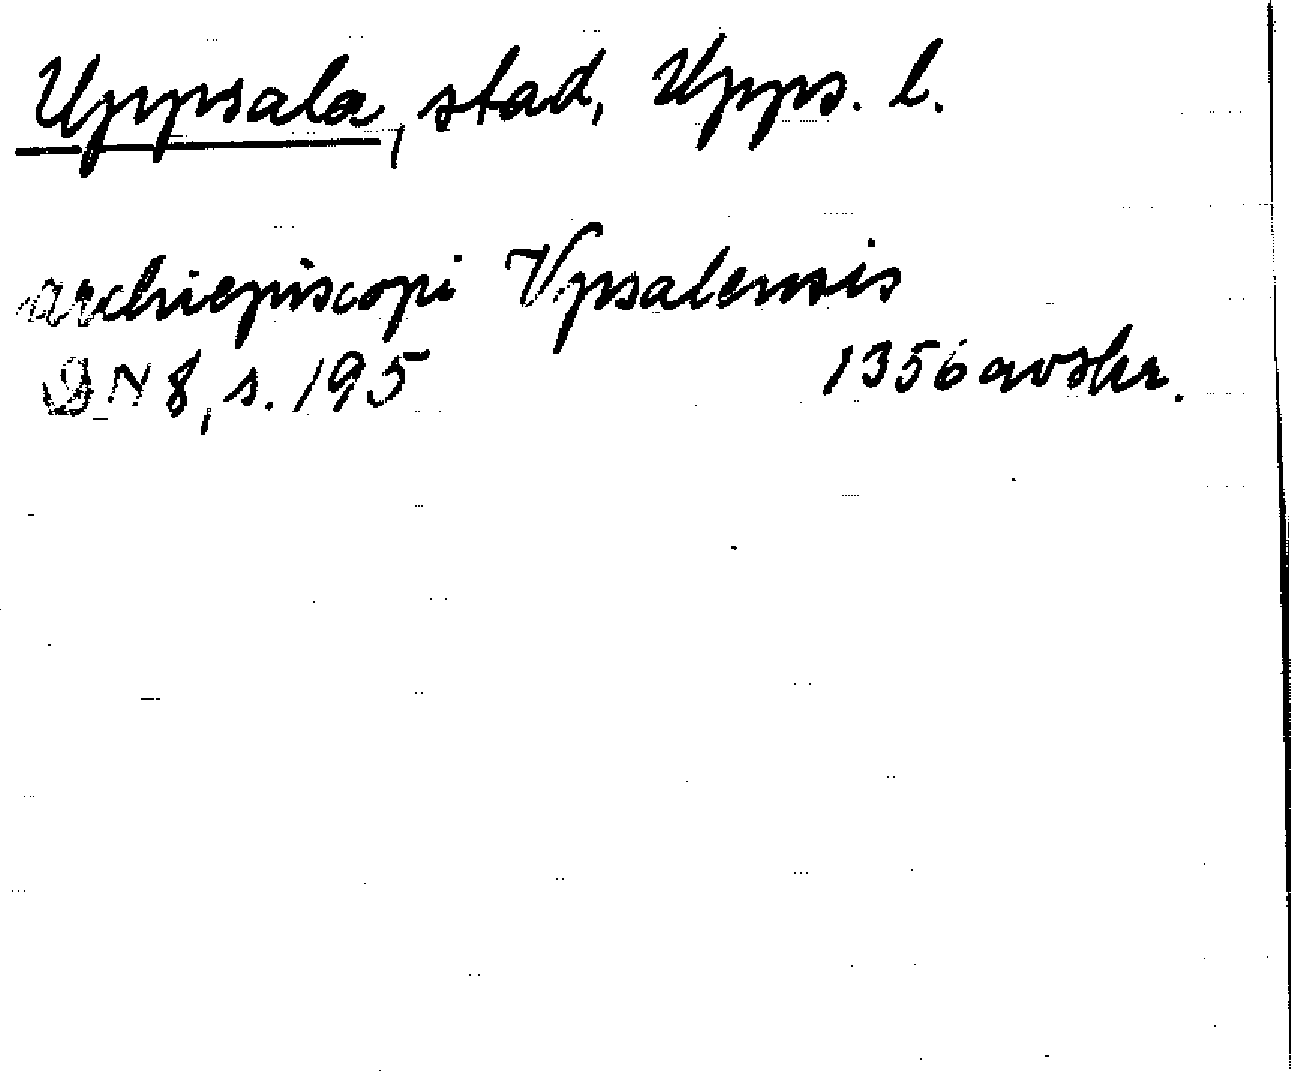 Uppsala, stad, Upps. l.
archiepiscopi Vpsalensis
DN 8, s. 195 1356 avskr.